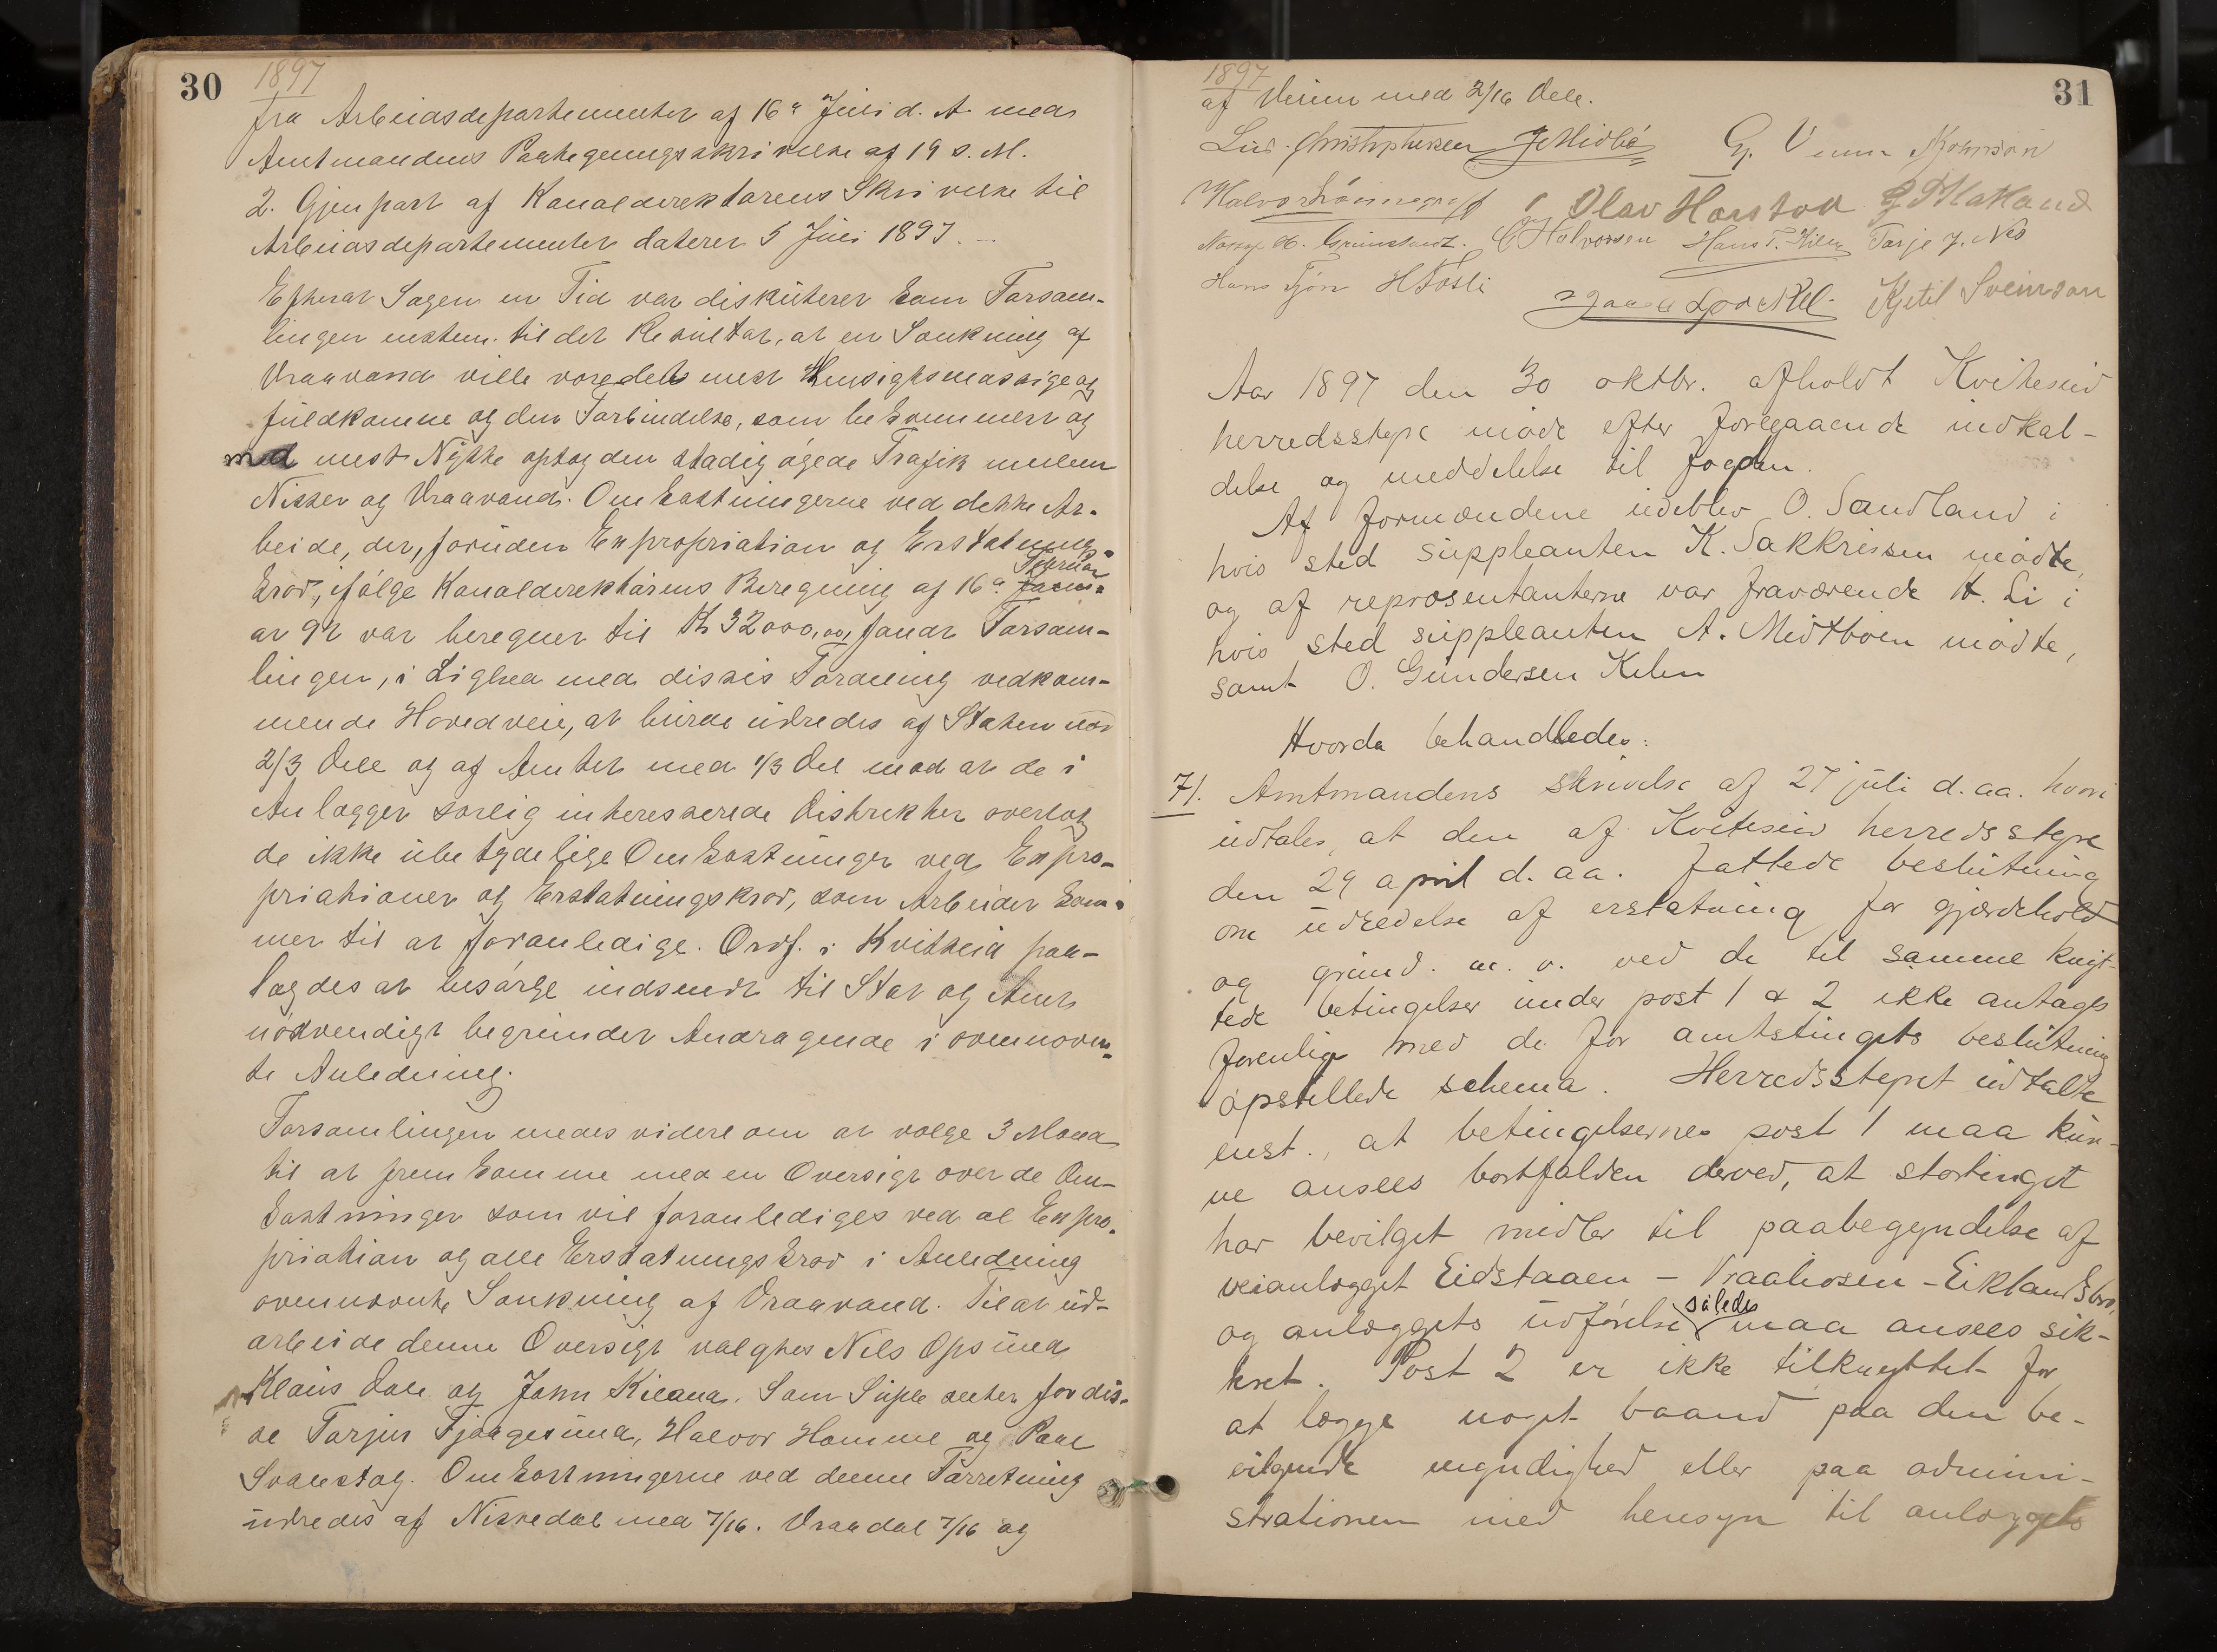 30
1897
fra Arbeidsdepartementet af 16de Juli d. A. med
Amtmandens Paategningsskrivelse af 19 s. M.
2. Gjenpart af Kanaldirektørens Skrivelse til
Arbeidsdepartementet dateret 5 Juli 1897.
Efterat Sagen en Tid var diskuteret kom Forsam-
lingen enstem. til det Resultat, at en Sænkning af
Vraavand ville være det mest Hensigtsmæssige og
fuldkomne og den Forbindelse, som bekvemmest og
med mest Nytte optog den stadig øgede Trafik mellem
Nisser og Vraavand. Omkostningerne ved dette Ar-
beide, der, foruden Expropriation og Erstatnings-
krav, ifølge Kanaldirektørens Beregning af 16de Janu- Februar
ar 92 var beregnet til Kr 32000,00, fandt Forsam-
lingen, i Lighed med disses Fordeling vedkom-
mende Hovedveie, at burde udredes af Staten med
2/3 Dele og af Amtet med 1/3 Del mod at de i
Anlægget særlig interesserede Distrikter overtog
de ikke ubetydelige Omkostninger ved Expro-
priationer og Erstatningskrav, som Arbeidet kom-
mer til at foranledige. Ordf. i Kvitseid paa-
lagdes at besørge indsendt til Stat og Amt
nødvendigt begrundet Andragende i ovennævn-
te Anledning.
Forsamlingen enedes videre om at vælge 3 Mænd
til at fremkomme med en Oversigt over de Om-
kostninger som vil foranlediges ved al Expro-
priation og alle Erstatningskrav i Anledning
ovennævnte Sænkning af Vraavand. Til at ud-
arbeide denne Oversigt valgtes Nils Opsund
Klaus Dale og John Kileand. Som Supleanter for dis-
se Tarjus Fjaagesund, Halvor Homme og Paal
Svalestog. Omkostningerne ved denne Forretning
udredes af Nissedal med 7/16. Vraadal 7/16 og
31
1897
af Vinum med 2/16 Dele.
Lud. Christophersen J Midbö G. Vinum
Olav Haustad
C Halvorsen Hans T. Kilen Tarje J. Nes
Hans Tjøn H Fosli Kjetil Sveinson
Aar 1897 den 30 oktbr. afholdt Kviteseid
herredsstyre møde efter foregaaende indkal-
delse og meddelelse til fogden.
Af formændene udeblev O. Sandland i
hvis sted suppleanten K. Sakkrissen mødte,
og af repræsentanterne var fraværende H. Li i
hvis sted suppleanten A. Midtbøen mødte,
samt O. Gundersen Kilen
Hvorda behandledes:
71. Amtmandens skrivelse af 27 juli d. aa. hvori
udtales, at den af Kviteseid herredsstyre
den 29 april d. aa. fattede beslutning
om udredelse af erstatning for gjærdehold
og grund. m. v. ved de til samme knyt-
tede betingelser under post 1 & 2 ikke antages
forenlig med de for amtstingets beslutning
opstillede schema. Herredsstyret udtalte
enst., at betingelsernes post 1 maa kun-
ne ansees bortfalden derved, at stortinget
har bevilget midler til paabegyndelse af
veianlægget Eidstaaen – Vraaliosen – Eiklandsbro,
og anlæggets udførelse således maa ansees sik-
kret. Post 2 er ikke tilknyttet for
at lægge noget baand paa den be-
vilgende myndighed eller paa admini-
strationen med hensyn til anlæggets